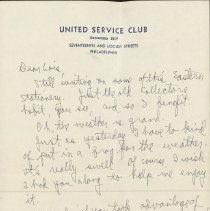 UNITED SERVICE CLUB
SEVENTEENTH AND LOCUST STREETS
PHILADELPHIA
Dear Lois,
Still writing on some of this Eastern
stationery. Just the old Collectors
habit, you see, and so I benefit.
Oh, the weather is grand.
Just as yesterday I have to kind
of put in a brag for the weather.
It's really swell of course I wish
I had you along to help me enjoy
it.
took advantage of